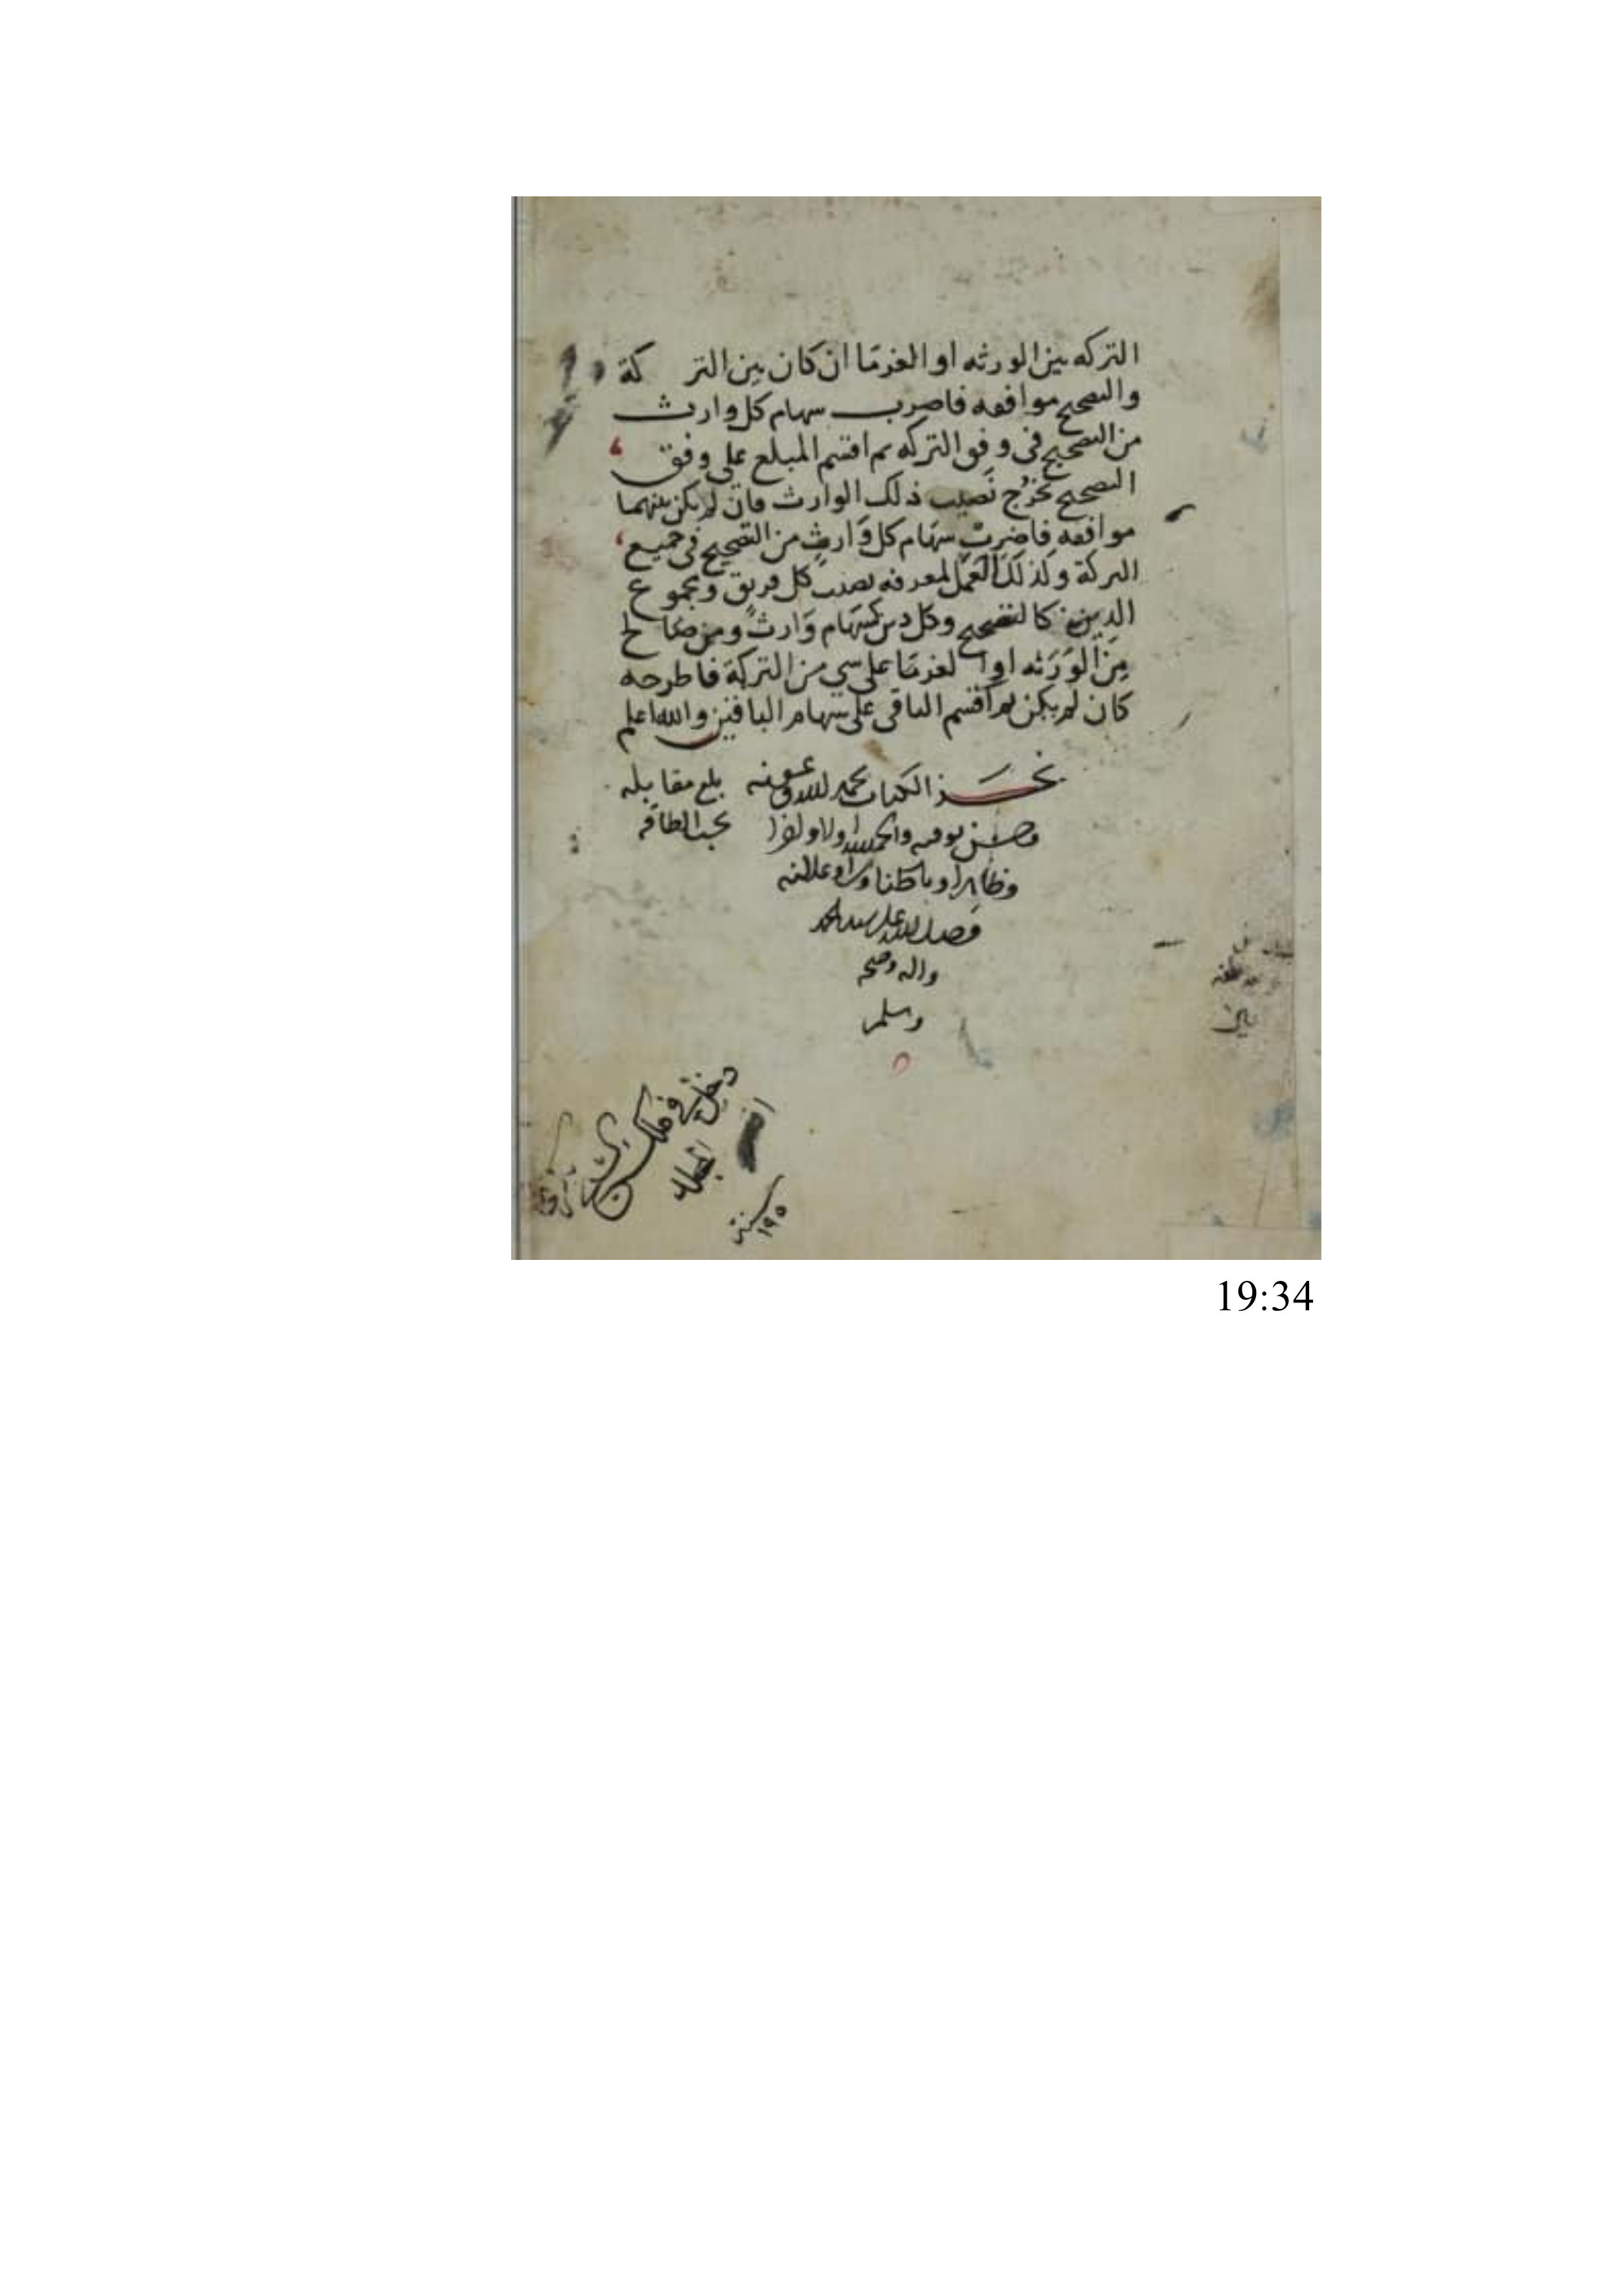 التركه بين الورثه او الغرما ان كان بين التر كة
والتصحيح موافقه فاضرب سهام كل وارث
من التصحيح في وفق التركه ثم اقسم المبلغ على وفق
التصحيح يخرج نصيب ذلك الوارث فان لم يكن بينهما
موافقه فاضرب سهام كل وارث من التصحيح في جميع
التركة وكذلك العمل لمعرفه نصيب كل فريق ومجموع
الدين كالتصحيح وكل دين كسهام وارث ومن صالح
من الورثه او الغرما على شي من التركة فاطرحه
كان لم يكن ثم اقسم الباقي على سهام الباقين والله اعلم
نجز الكتاب بحمد الله وعونه
وحسن توفيقه والحمد لله اولا واخرا
وظاهرا وباطنا وسرا وعلانيه
وصلى الله على سيدنا محمد
واله وصحبه
وسلم
بلغ مقابله
بحسب الطاقه
دخل في ملك
سنة
19:34